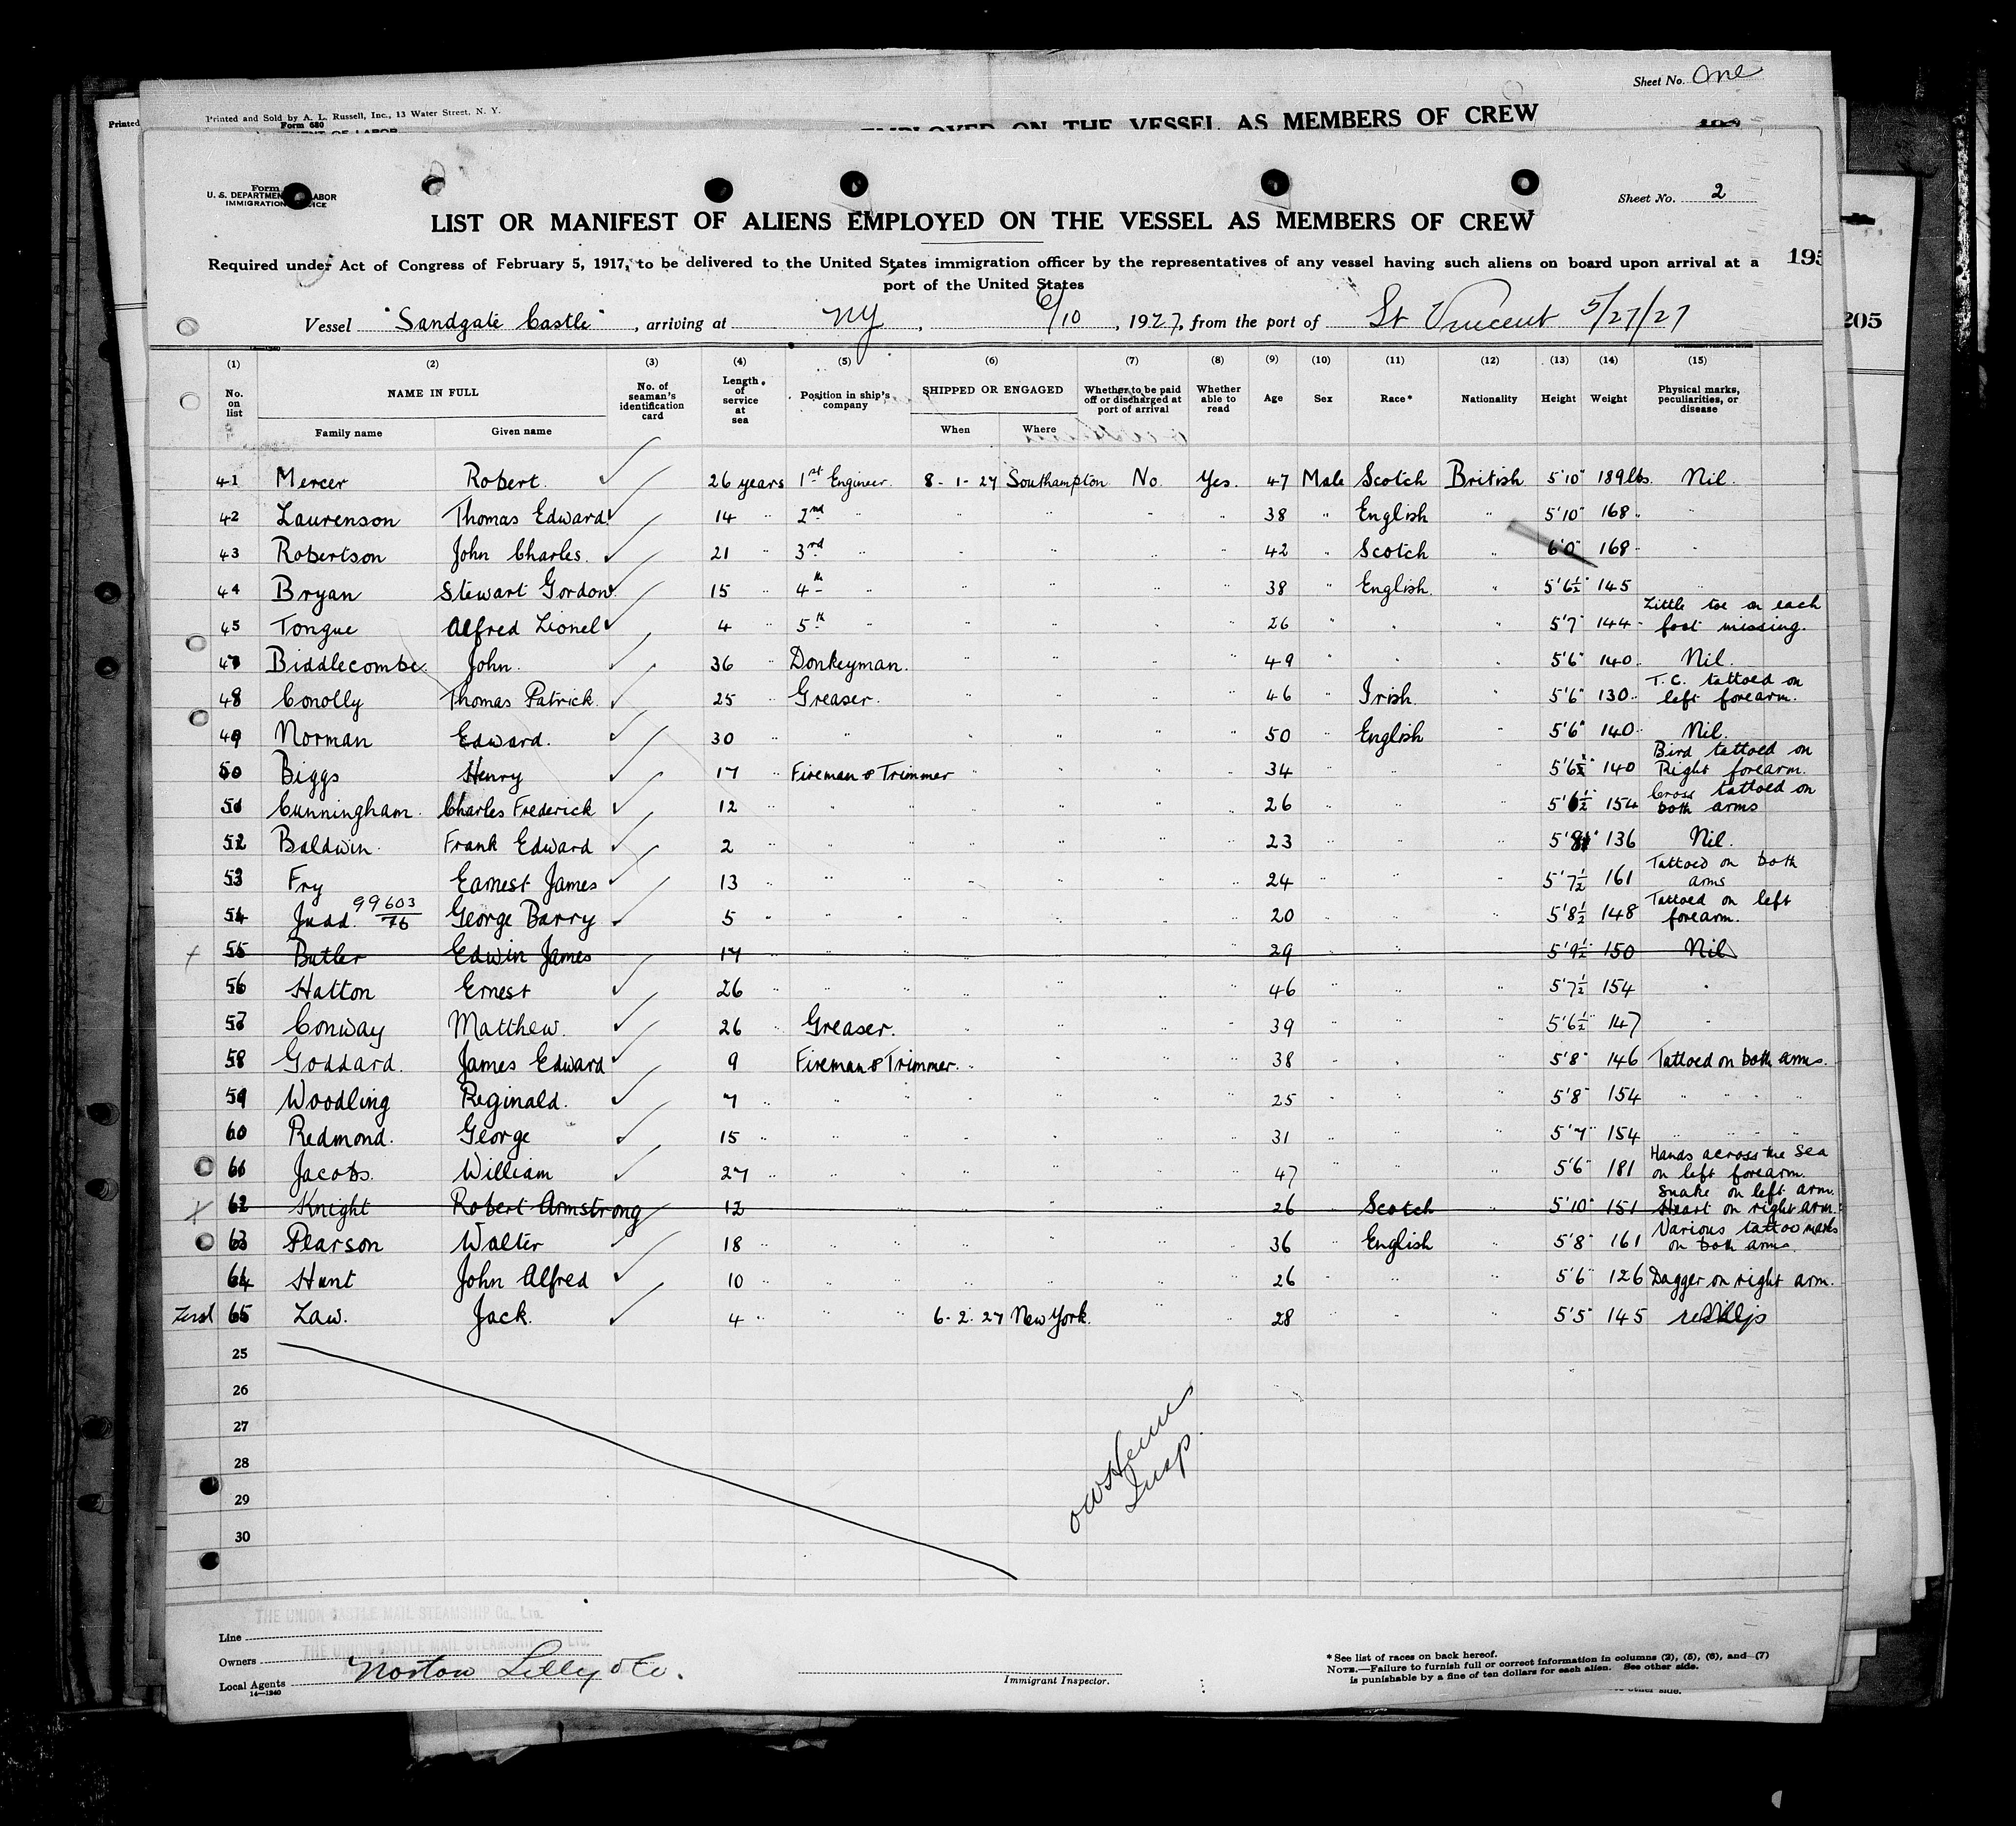 Sheet No. One
Printed
Printed and Sold by A. L. Russell, Inc., 13 Water Street, N. Y.
Form 680
EMPLOYED ON THE VESSEL AS MEMBERS OF CREW
Form
U. S. DEPARTMENT LABOR
IMMIGRATION
Sheet No. 2
LIST OR MANIFEST OF ALIENS EMPLOYED ON THE VESSEL AS MEMBERS OF CREW
Required under Act of Congress of February 5, 1917, to be delivered to the United States immigration officer by the representatives of any vessel having such aliens on board upon arrival at a
port of the United States
195
205
Vessel "Sandgate Castle", arriving at NY, 6/10, 1927, from the port of St Vincent 5/27/27
(1) (2) (3) (4) (5) (6) (7) (8) (9) (10) (11) (12) (13) (14) (15)
No. on list NAME IN FULL Family name Given name No. of seaman's identification card Length of service at sea Position in ship's company SHIPPED OR ENGAGED When Where Whether to be paid off or discharged at port of arrival Whether able to read Age Sex Race* Nationality Height Weight Physical marks, peculiarities, or disease
41 Mercer Robert. ✓ 26 years 1st Engineer. 8-1-27 Southampton No. Yes. 47 Male Scotch British 5'10" 189lbs. Nil.
42 Laurenson Thomas Edward ✓ 14 " 2nd " " " " " 38 " English " 5'10" 168 " "
43 Robertson John Charles. ✓ 21 " 3rd " " " " " 42 " Scotch " 6'0" 168 " "
44 Bryan Stewart Gordon ✓ 15 " 4th " " " " " 38 " English. " 5'6½" 145 "
45 Tongue Alfred Lionel ✓ 4 " 5th " " " " " 26 " " " 5'7" 144 " Little toe on each foot missing.
47 Biddlecombe. John. ✓ 36 " Donkeyman. " " " " 49 " " " 5'6" 140. Nil.
48 Conolly Thomas Patrick. ✓ 25 " Greaser. " " " " 46 " Irish. " 5'6" 130. T.C. tattoed on left forearm.
49 Norman Edward. ✓ 30 " " " " " " 50 " English " 5'6" 140. Nil.
50 Biggs Henry ✓ 17 " Fireman & Trimmer " " " " 34 " " " 140 Bird tattoed on Right forearm.
51 Cunningham. Charles Frederick ✓ 12 " " " " " " 26 " " " 5'6½" 154 Cross tattoed on both arms
52 Baldwin. Frank Edward ✓ 2 " " " " " " 23 " " " 136 Nil.
53 Fry Earnest James ✓ 13 " " " " " " 24 " " " 5'7½ 161 Tattoed on both arms
54 Judd. 99603/76 George Barry ✓ 5 " " " " " " 20 " " " 5'8½ 148 Tattoed on left forearm.
55 Butler Edwin James 17 " " " " " " 29 " " " 5'9½ 150 Nil
56 Hatton Ernest ✓ 26 " " " " " " 46 " " " 5'7½ 154 "
57 Conway Matthew. ✓ 26 " Greaser. " " " " 39 " " " 5'6½" 147 "
58 Goddard. James Edward ✓ 9 Fireman & Trimmer. " " " " 38 " " " 5'8" 146 Tattoed on both arms.
59 Woodling Reginald. ✓ 7 " " " " " " 25 " " " 5'8" 154 " " " "
60 Redmond. George ✓ 15 " " " " " " 31 " " " 5'7" 154 " " " "
61 Jacobs. William ✓ 27 " " " " " " 47 " " " 5'6" 181 Hands across the Sea on left forearm.
62 Knight Robert Armstrong 12 " " " " " " 26 " Scotch " 5'10" 151 Snake on left arm. Heart on right arm.
63 Pearson Walter ✓ 18 " " " " " " 36 " English " 5'8" 161 Various tattoo marks on both arms.
64 Hunt John Alfred ✓ 10 " " " " " " 26 " " " 5'6" 126 Dagger on right arm.
65 Law. Jack. ✓ 4 " " " 6-2-27 New York. " " 28 " " " 5'5" 145
25
26
27
28
29
30
Insp.
THE UNION CASTLE MAIL STEAMSHIP Co., Ltd.
Line
THE UNION-CASTLE MAIL STEAMSHIP Co., Ltd.
Owners
Local Agents Norton Lilly & Co.
14—1240
Immigrant Inspector.
* See list of races on back hereof.
NOTE.—Failure to furnish full or correct information in columns (2), (5), (6), and (7)
is punishable by a fine of ten dollars for each alien. See other side.